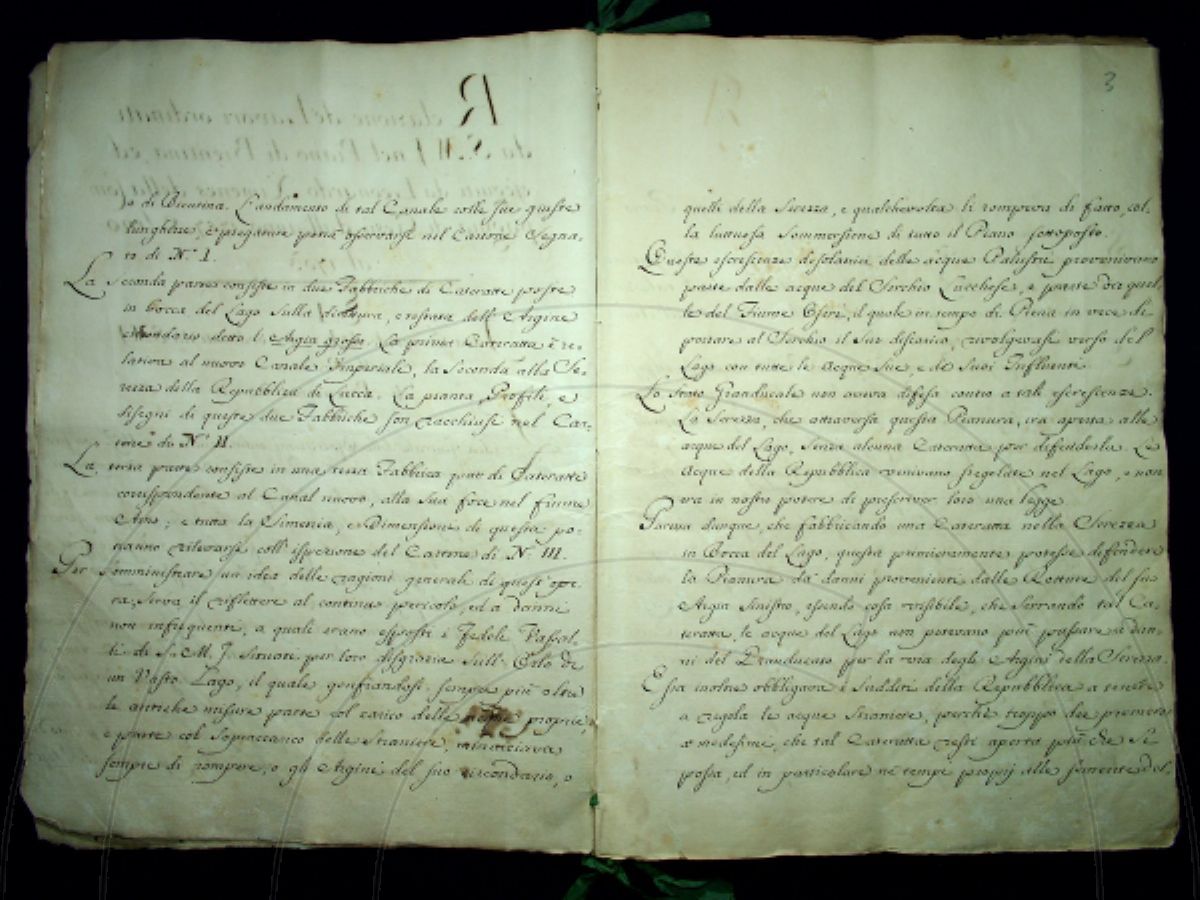 o di Bientina. L'andamento di tal Canale colle sue giuste
lunghezze, e piegature potrà osservarsi nel Cartone segna-
to di N.° I.
La seconda parte consiste in due Fabbriche di Cateratte poste
in bocca del Lago sulla dirittura, e testata dell'Argine
Circondario detto l'Argin grosso. La prima Cateratta è re-
lativa al nuovo Canale Imperiale, la seconda alla Se-
rezza della Repubblica di Lucca. La pianta, Profili, e
disegni di queste due Fabbriche son racchiuse nel Car-
tone di N.° II.
La terza parte consiste in una terza Fabbrica pure di Cateratte
corrispondente al Canal nuovo, alla sua foce nel fiume
Arno; e tutta la Simetria, e Dimensione di questa po-
tranno rilevarsi coll'ispezione del Cartone di N. III.
Per somministrare un idea delle ragioni generali di quest'ope-
ra, serva il riflettere al continuo pericolo, ed a danni
non infrequenti, a quali erano esposti i Fedeli Vassal-
li di S. M. I. situati per loro disgrazia sull'Orlo di
un Vasto Lago, il quale gonfiandosi sempre più oltre
le antiche misure parte col carico delle acque proprie,
e parte col sopraccarico delle straniere, minacciava
sempre di rompere, o gli Argini del suo circondario, o
3
quelli della Serezza, e qualchevolta li rompeva di fatto, col-
la luttuosa sommersione di tutto il Piano sottoposto.
Queste escrescenze desolatrici delle acque Palustri provenivano
parte dalle acque del Serchio Lucchese, e parte da quel-
le del Fiume Oseri, il quale in tempo di Piena in vece di
portare al Serchio il suo discarico, rivolgevasi verso del
Lago con tutte le Acque sue, e de suoi Influenti.
Lo Stato Granducale non aveva difesa contro a tali escrescenze.
La Serezza, che attraversa questa Pianura, era aperta alle
acque del Lago, senza alcuna Cateratta per diffenderla. Le
Acque della Repubblica venivano sregolate nel Lago, e non
era in nostro potere di prescriver loro una legge.
Pareva dunque, che fabbricando una Cateratta nella Serezza
in Bocca del Lago, questa primieramente potesse difendere
la Pianura da danni provenienti dalle Rotture del suo
Argin sinistro, essendo cosa visibile, che serrando tal Ca-
teratta, le acque del Lago non potevano più passare a dan-
ni del Granducato per la via degli Argini della Serezza.
Essa inoltre obbligava i Sudditi della Repubblica a tenere
a regola le acque straniere, perchè troppo dee premere
a medesimi, che tal Cateratta resti aperta più che si
possa, ed in particolare ne tempi proprj alle semente del-